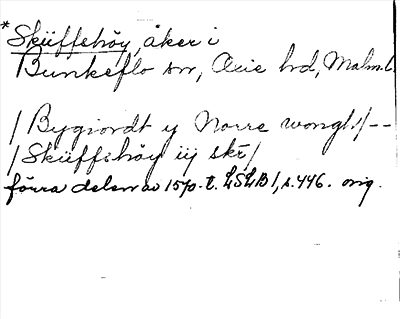 *Sküffehöy, åker i
Bunkeflo sn, Oxie hd, Malm.l.
/Bygiordt y Norre wongh/--
/Sküffehöy iij skr/
förra delen av 1570-t. LSLB1, s. 446. orig.